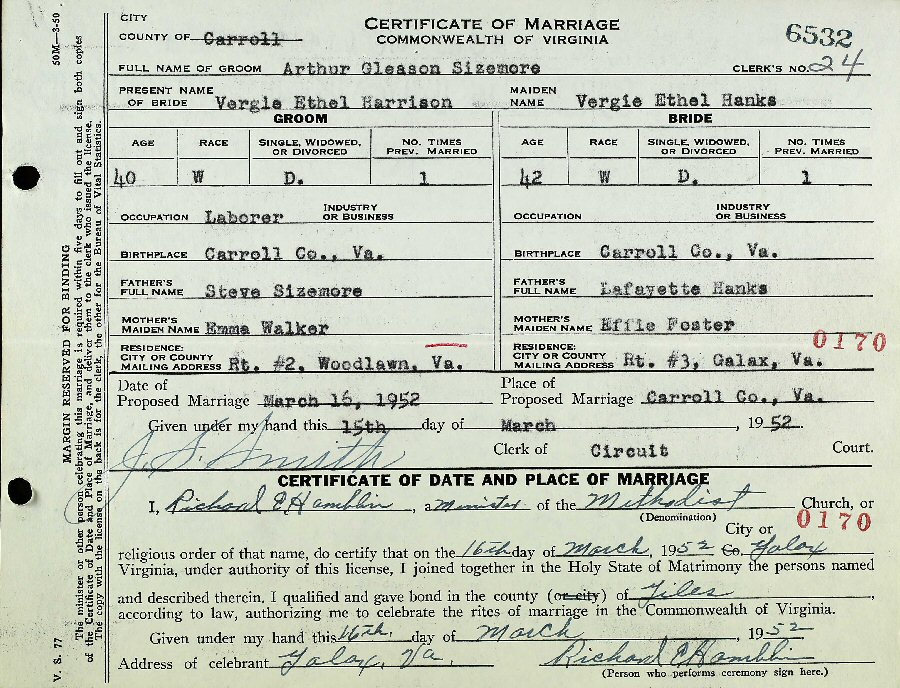 CITY
COUNTY OF Carroll
CERTIFICATE OF MARRIAGE
COMMONWEALTH OF VIRGINIA
6532
FULL NAME OF GROOM Arthur Gleason Sizemore CLERK'S NO. 24
PRESENT NAME OF BRIDE Vergie Ethel Harrison MAIDEN NAME Vergie Ethel Hanks
GROOM BRIDE
AGE RACE SINGLE, WIDOWED, OR DIVORCED NO. TIMES PREV. MARRIED AGE RACE SINGLE, WIDOWED, OR DIVORCED NO. TIMES PREV. MARRIED
40 W D. 1 42 W D. 1
OCCUPATION Laborer INDUSTRY OR BUSINESS OCCUPATION INDUSTRY OR BUSINESS
BIRTHPLACE Carroll Co., Va. BIRTHPLACE Carroll Co., Va.
FATHER'S FULL NAME Steve Sizemore FATHER'S FULL NAME Lafayette Hanks
MOTHER'S MAIDEN NAME Emma Walker MOTHER'S MAIDEN NAME Effie Foster
0170
RESIDENCE: CITY OR COUNTY MAILING ADDRESS Rt. #2. Woodlawn, Va. RESIDENCE: CITY OR COUNTY MAILING ADDRESS Rt. #3, Galax, Va.
Date of Proposed Marriage March 16, 1952 Place of Proposed Marriage Carroll Co., Va.
Given under my hand this 15th day of March, 1952.
J. S. Smith Clerk of Circuit Court.
CERTIFICATE OF DATE AND PLACE OF MARRIAGE
I, Richard E Hamblin, a minister of the Methodist Church, or
(Denomination)
City or
0170
religious order of that name, do certify that on the 16th day of March, 1952 Co. Galax
Virginia, under authority of this license, I joined together in the Holy State of Matrimony the persons named
and described therein. I qualified and gave bond in the county (or city) of Giles,
according to law, authorizing me to celebrate the rites of marriage in the Commonwealth of Virginia.
Given under my hand this 16th. day of March, 1952
Address of celebrant Galax, Va. Richard E Hamblin
(Person who performs ceremony sign here.)
50M—3-50
V. S. 77
MARGIN RESERVED FOR BINDING
The minister or other person celebrating this marriage is required within five days to fill out and sign both copies
of the Certificate of Date and Place of Marriage, and deliver them to the clerk who issued the license.
The copy with the license on the back is for the clerk, the other for the Bureau of Vital Statistics.